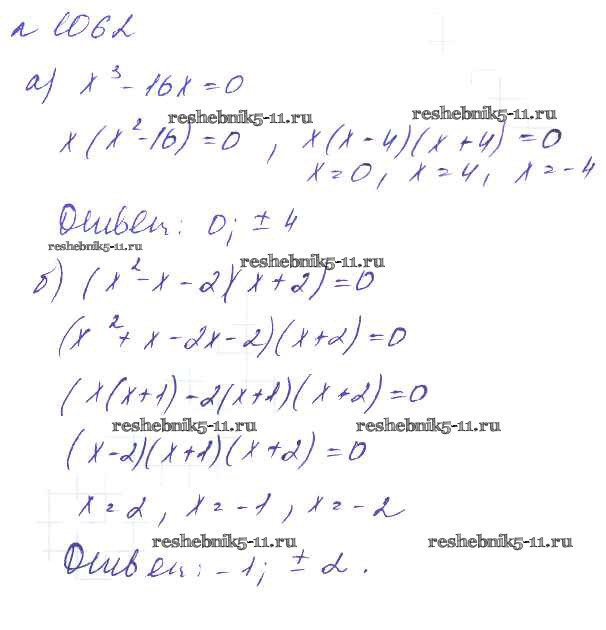 № 1062
а) x³ - 16x = 0
reshebnik5-11.ru reshebnik5-11.ru
x(x² - 16) = 0, x(x - 4)(x + 4) = 0
x = 0, x = 4, x = -4
Ответ: 0; ± 4
reshebnik5-11.ru
reshebnik5-11.ru
б) (x² - x - 2)(x + 2) = 0
(x² + x - 2x - 2)(x + 2) = 0
(x(x+1) - 2(x+1)(x+2) = 0
reshebnik5-11.ru reshebnik5-11.ru
(x-2)(x+1)(x+2) = 0
x = 2, x = -1, x = -2
reshebnik5-11.ru reshebnik5-11.ru
Ответ: -1; ± 2.